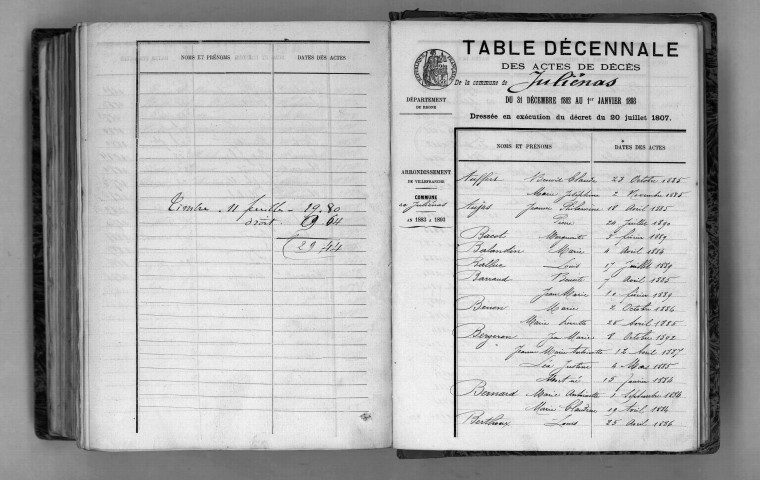 NOMS ET PRÉNOMS DATES DES ACTES
Timbre 11 feuilles - 19.80
droit 9 64
29.44
TABLE DÉCENNALE
DES ACTES DE DÉCÈS
De la commune de Juliénas
DU 31 DÉCEMBRE 1882 AU 1er JANVIER 1893
Dressée en exécution du décret du 20 juillet 1807.
DÉPARTEMENT
DU RHONE
ARRONDISSEMENT
DE VILLEFRANCHE
COMMUNE
de Juliénas
AN 1883 À 1893
NOMS ET PRÉNOMS DATES DES ACTES
Benoit Claude 23 Octobre 1885
Marie Joséphine 2 Novembre 1885
Jeanne Philomène 18 Avril 1885
Pierre 20 Juillet 1890
Bacot Marguerite 3 février 1889
Balandin Marie 4 Avril 1884
Louis 17 Juillet 1889
Barraud Benoite 7 Avril 1885
Jean Marie 10 février 1889
Marie 2 Octobre 1884
Marie 28 Avril 1885
Bergeron Jean Marie 8 Octobre 1892
Jeanne Marie Antoinette 12 Avril 1887
Léa Justine 4 Mars 1885
Mort né 15 Janvier 1884
Bernard Marie Antoinette 1 Septembre 1884
Marie Claudine 19 Avril 1884
Louis 25 Avril 1886